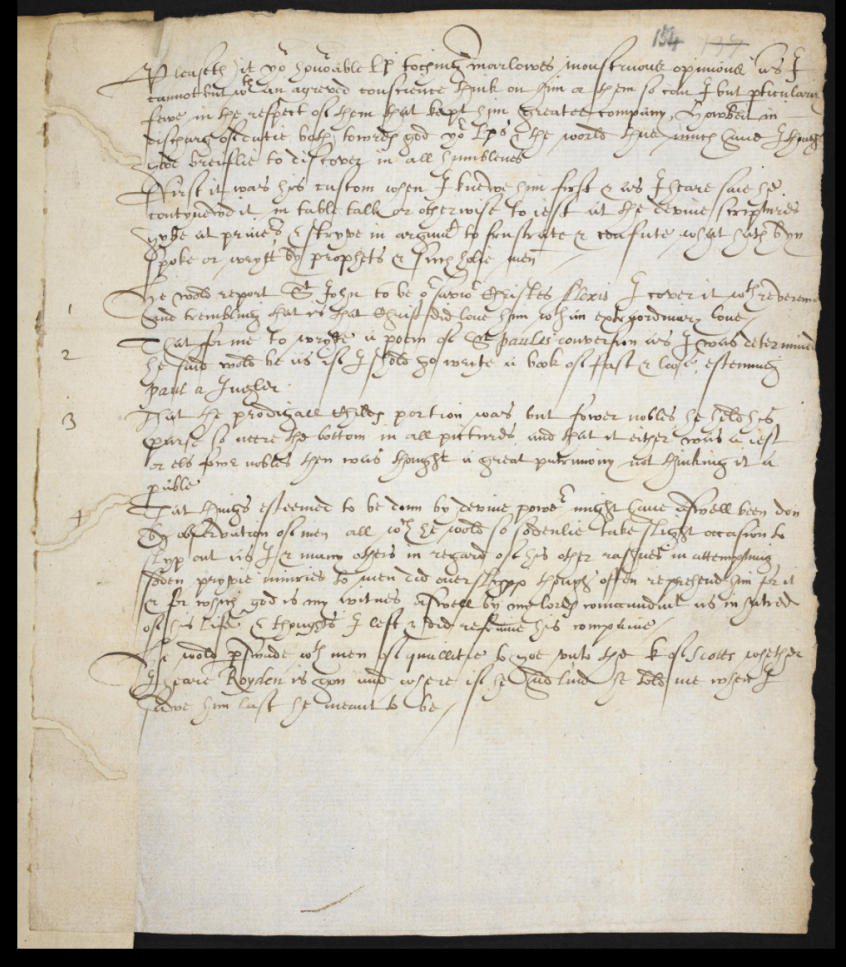 154 127
Pleaseth it yor honorable Lp toching marlowes monstruous opinions as I
cannot but wth an agreved conscience think on him or them so can I but pticulariz
fewe in the respect of them that kept him greater company, Howbeit in
discharg of dutie both towrds god yor Lps & the world thus much haue I thought
good breiflie to discover in all humblenes
First it was his custom when I knewe him first & as I heare saie he
contynewd it in table talk or otherwise to iest at the devine scriptures
gybe at praiers, & stryve in argumt to frustrate & confute what hath byn
spoke or wrytt by prophets & such holie men /
1 He wold report St John to be or savior Christes Alexis I cover it wth reverence
and trembling that is that Christ did loue him wth an extraordinary loue /
2 That for me to wryte a poem of St paules conversion as I was determined
he said wold be as if I shold go write a book of fast & loose, esteeming
Paul a Jugler.
3 That the prodigall Childes portion was but fower nobles he held his
purse so neere the bottom in all pictures, and that it either was a iest
or els fowr nobles then was thought a great patrimony not thinking it a
parable
4 That things esteemed to be donn by devine power might haue aswell been don
by observation of men all wch he wold so sodenlie take slight occasion to
slyp out as I & many others in regard of his other rashnes in attempting
soden pryvie iniuries to men did overslypp though often reprehend him for it
& for which god is my witnes aswell by my lords comaundmt as in hatred
of his Life & thoughts I left & did refraine his companie /
He wold pswade wth men of quallitie to goe vnto the K of Scotts whether
I heare Royden is gon and where if he had liud he told me when I
sawe him last he meant to be /